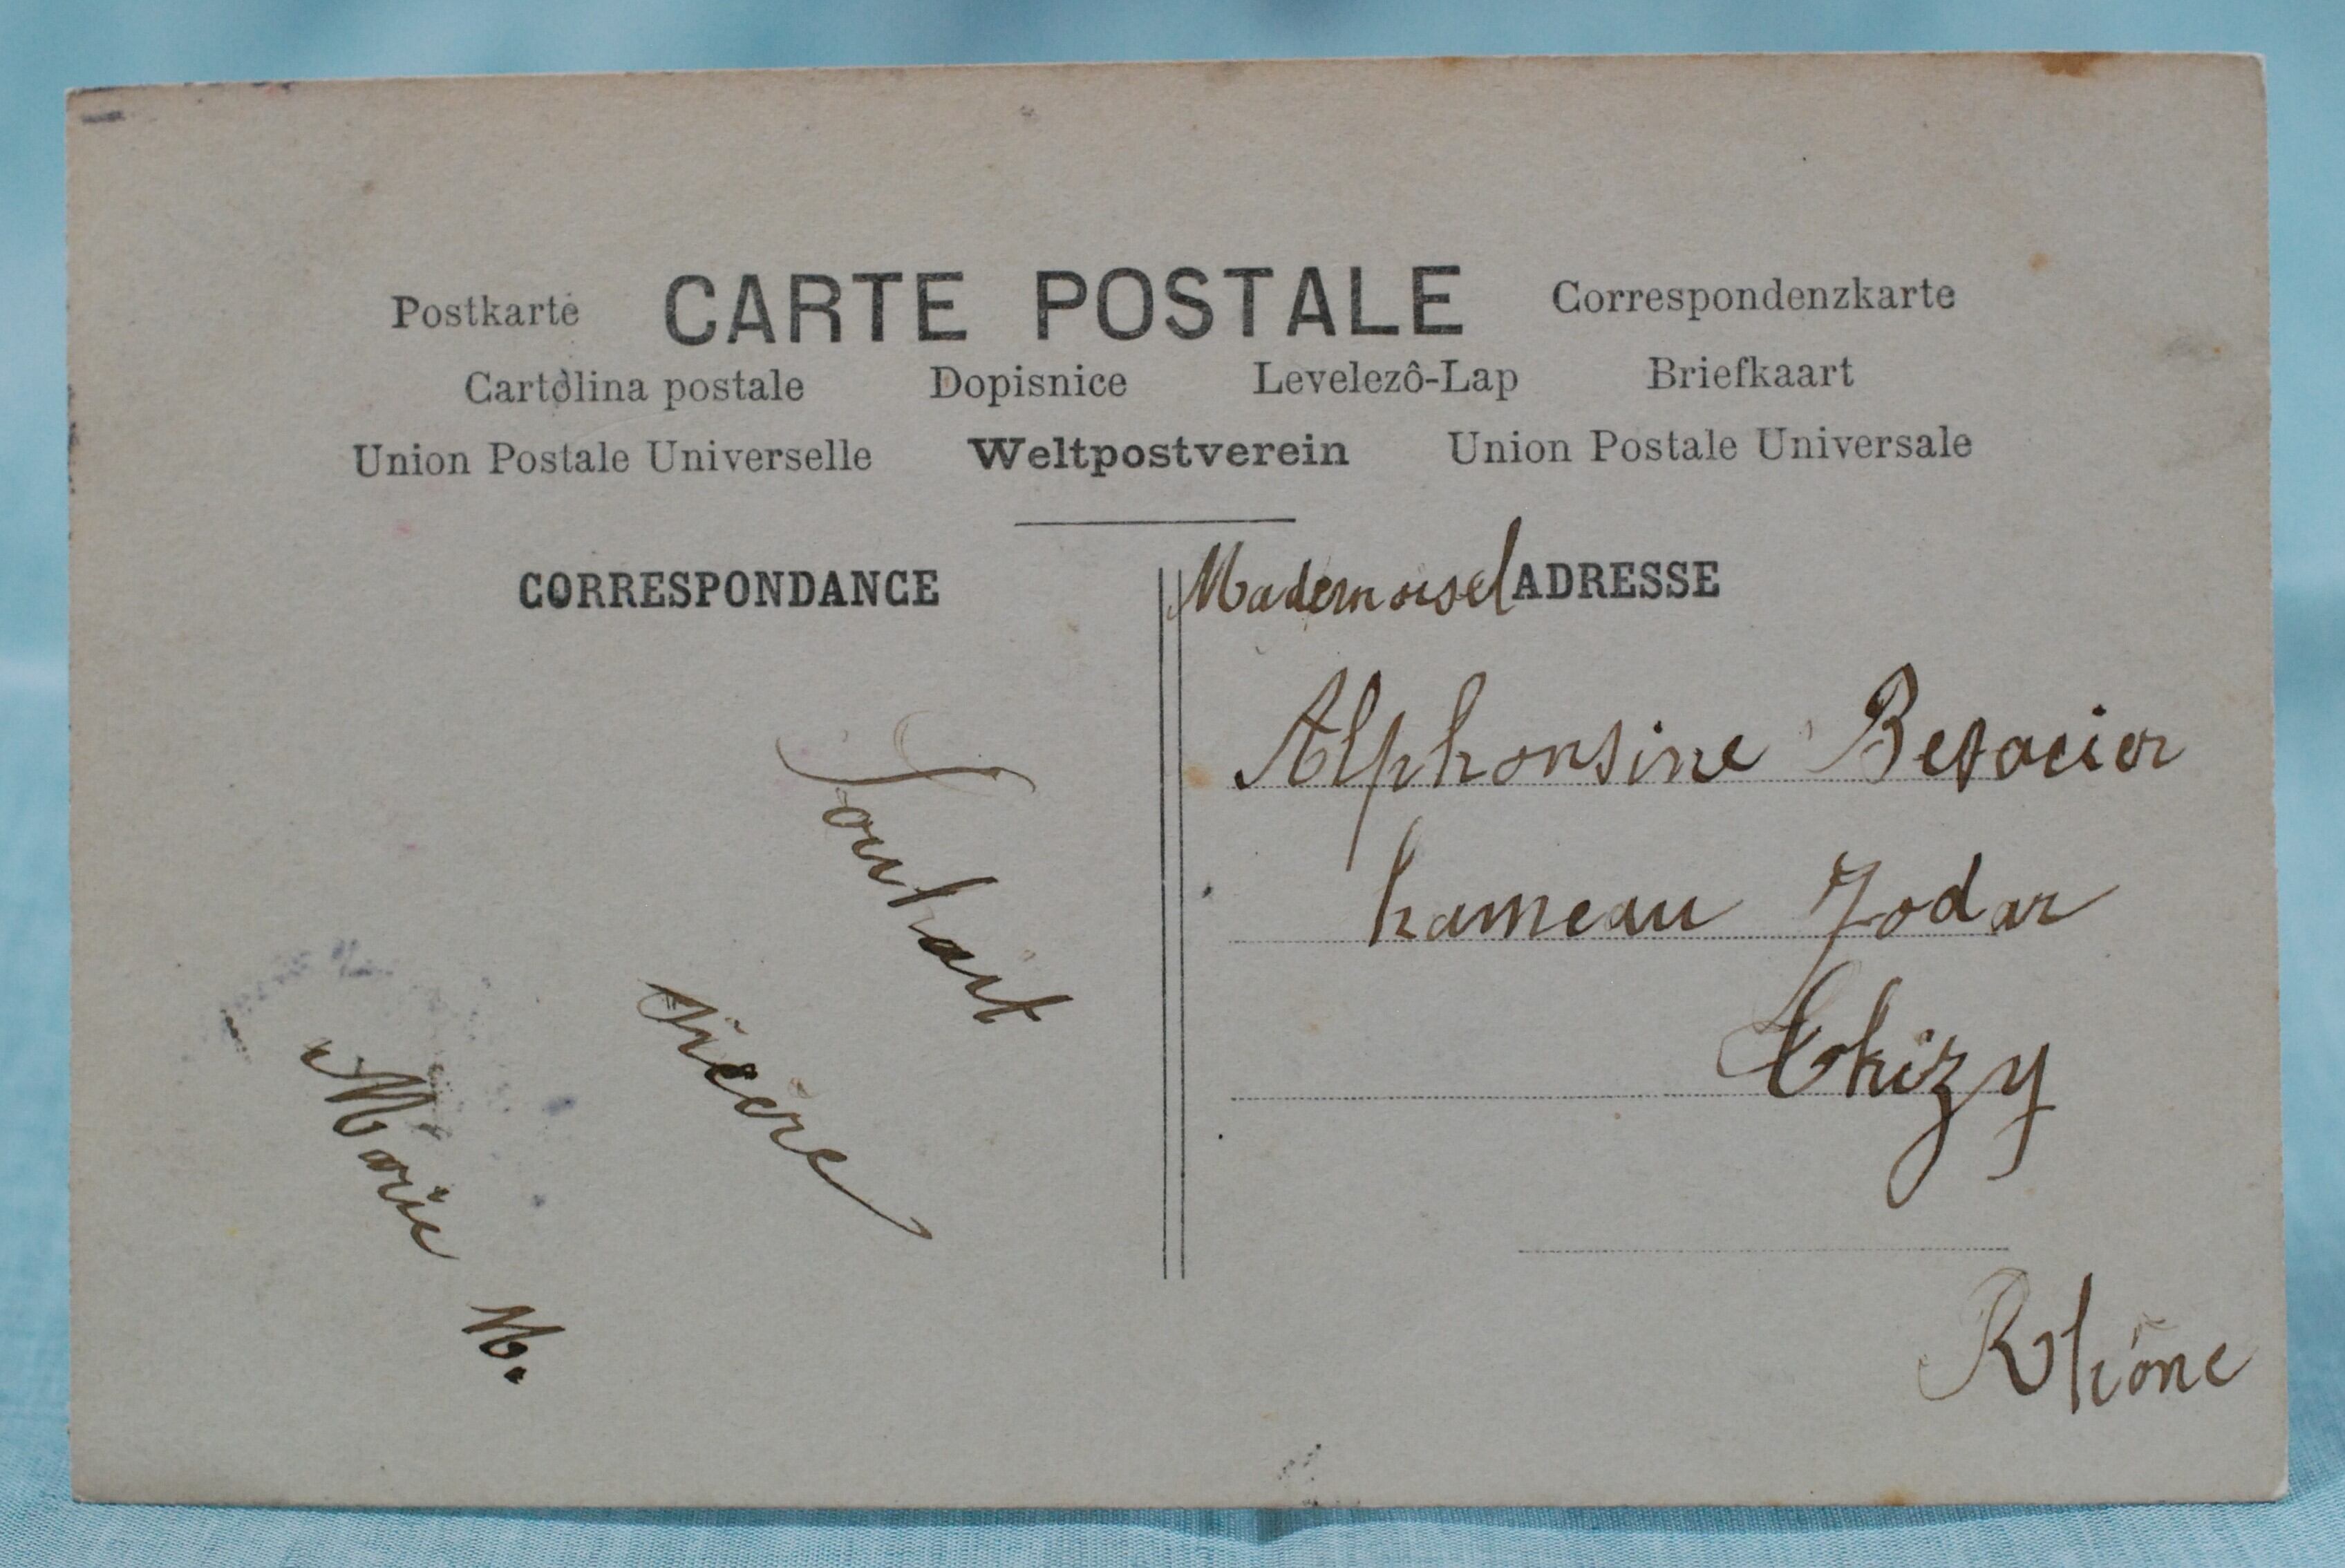 Postkarte CARTE POSTALE Correspondenzkarte
Cartolina postale Dopisnice Levelezô-Lap Briefkaart
Union Postale Universelle Weltpostverein Union Postale Universale
CORRESPONDANCE
Souhait
sincere
Marie M.
Mademoisel ADRESSE
Alphonsine
hameau
Thizy
Rhône